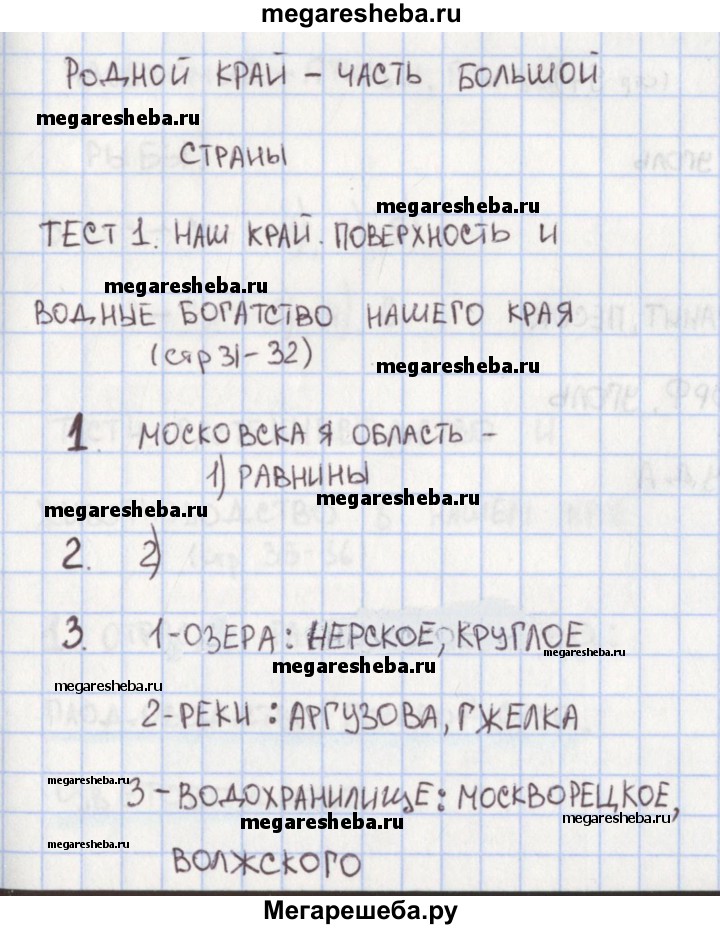 megaresheba.ru
РОДНОЙ КРАЙ – ЧАСТЬ БОЛЬШОЙ
megaresheba.ru
СТРАНЫ
megaresheba.ru
ТЕСТ 1. НАШ КРАЙ. ПОВЕРХНОСТЬ И
megaresheba.ru
ВОДНЫЕ БОГАТСТВО НАШЕГО КРАЯ
(стр 31-32)
megaresheba.ru
1. МОСКОВСКАЯ ОБЛАСТЬ –
1) РАВНИНЫ
megaresheba.ru
megaresheba.ru
2. 2)
3. 1-ОЗЕРА: НЕРСКОЕ, КРУГЛОЕ
megaresheba.ru
megaresheba.ru
megaresheba.ru
2-РЕКИ: АРГУЗОВА, ГЖЕЛКА
megaresheba.ru
3-ВОДОХРАНИЛИЩЕ: МОСКВОРЕЦКОЕ,
megaresheba.ru
megaresheba.ru
megaresheba.ru
ВОЛЖСКОГО
Мегарешеба.ру